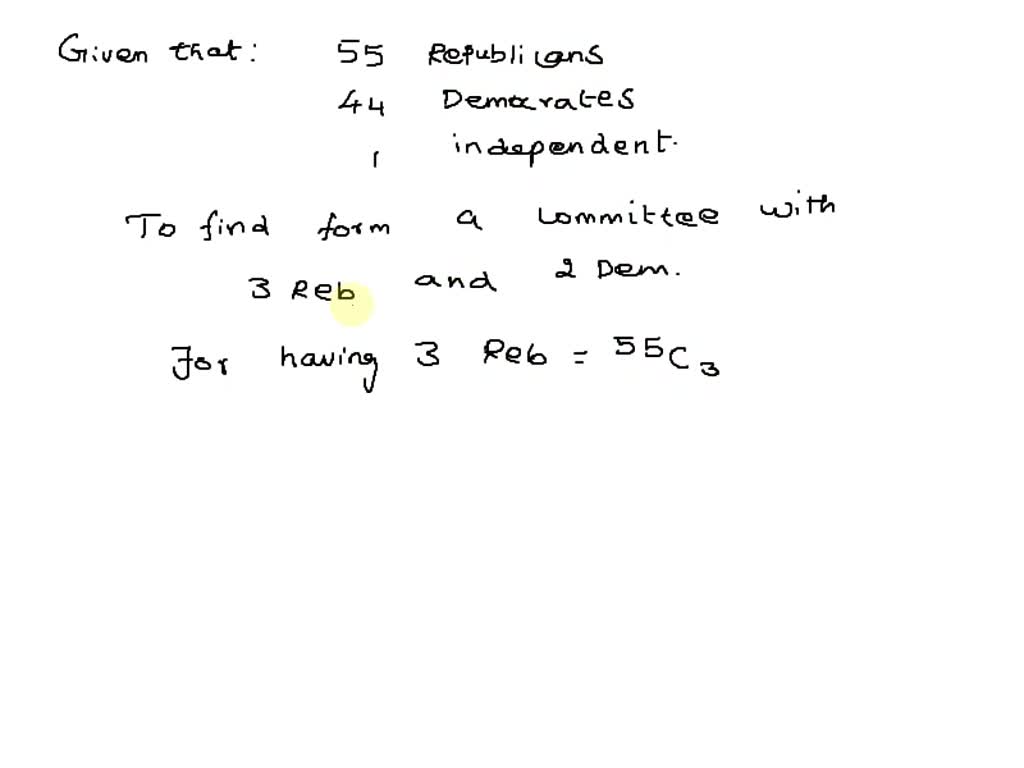 Given that: 55 Republicans
44 Democrates
1 independent.
To find form a committee with
3 Reb and 2 Dem.
For having 3 Reb = 55C3